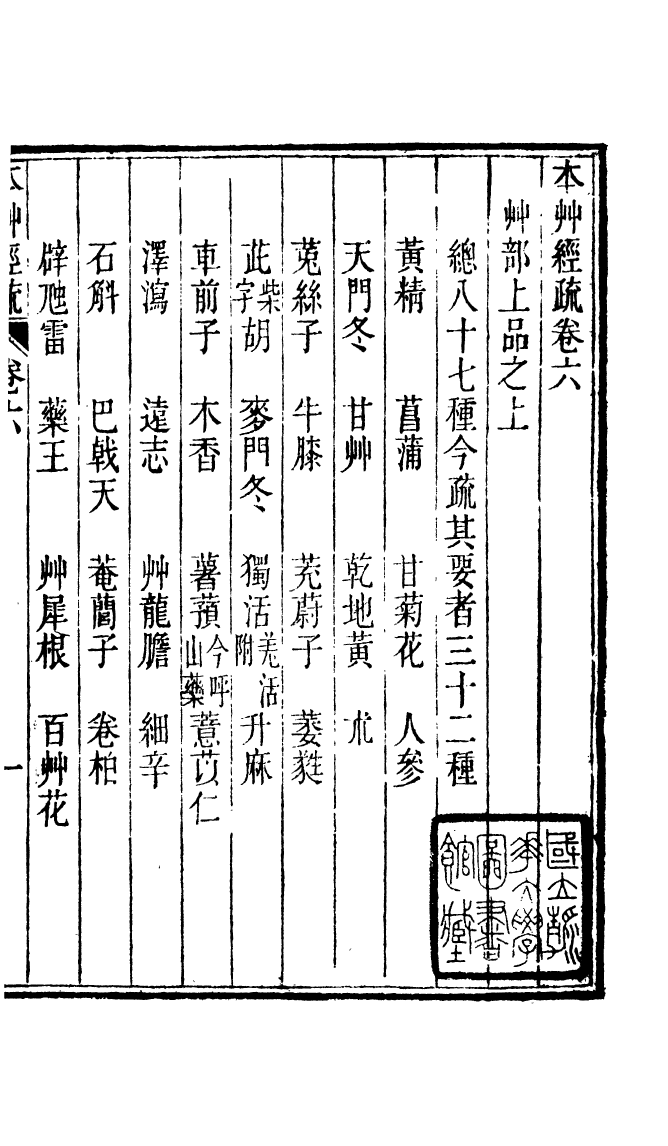 本艸經疏卷六
艸部上品之上
總八十七種今疏其要者三十二種
黃精 菖蒲 甘菊花 人參
天門冬 甘艸 乾地黃 朮
菟絲子 牛膝 茺蔚子 萎蕤
茈柴字胡 麥門冬 獨活羌活附 升麻
車前子 木香 薯蕷今呼山藥 薏苡仁
澤瀉 遠志 艸龍膽 細辛
石斛 巴戟天 菴䕡子 卷柏
辟虺雷 藥王 艸犀根 百艸花
本艸經疏 卷之六 一
國立浙江大學圖書館藏